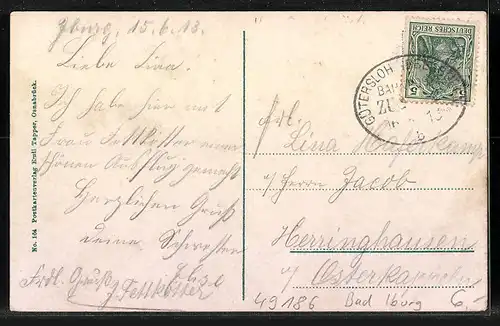 Iburg, 15.6.13.
Liebe Lina!
Ich habe hier mit
Frau Fettkötter einen
schönen Ausflug gemacht
Herzlichen Gruß
deine Schwester
Frdl. Gruß
J. Fettkötter
No. 164 Postkartenverlag Emil Tepper, Osnabrück.
DEUTSCHES REICH
5 5
GÜTERSLOH
BAH
ZU
b
Frl.
Lina
b/Herrn Jacob
Herringhausen
b/ Osterkappeln
49186 Bad Iburg 6,-